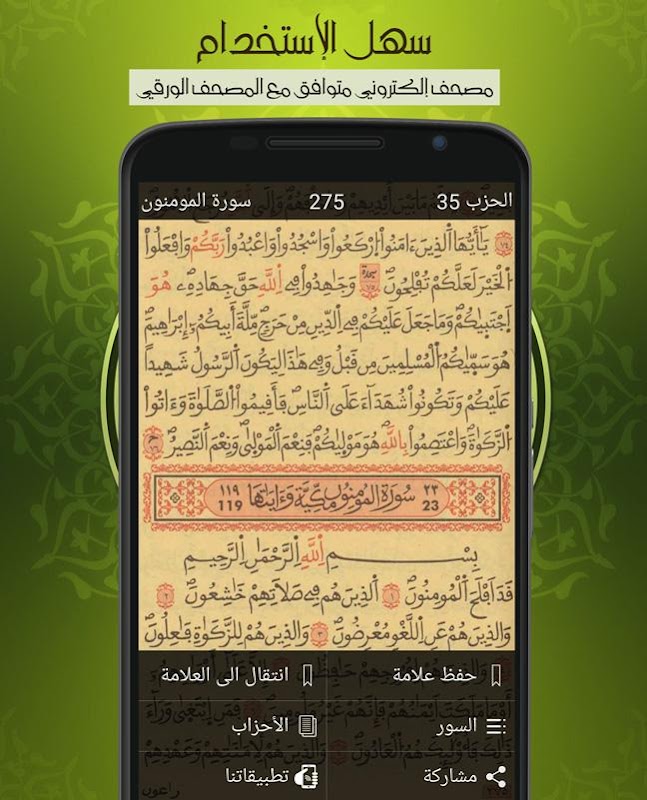 سهل الإستخدام
مصحف إلكتروني متوافق مع المصحف الورقي
الحزب 35 275 سورة المومنون
يَٰٓأَيُّهَا اَ۬لذِينَ ءَامَنُواْ اُ۪رْكَعُواْ وَاسْجُدُواْ وَاعْبُدُواْ رَبَّكُمْ وَافْعَلُواْ
اُ۬لْخَيْرَ لَعَلَّكُمْ تُفْلِحُونَ سجدة وَجَٰهِدُواْ فِے اِ۬للَّهِ حَقَّ جِهَادِهِۦ هُوَ
اَ۪جْتَبَيٰكُمْ وَمَا جَعَلَ عَلَيْكُمْ فِے اِ۬لدِّينِ مِنْ حَرَجٍ مِّلَّةَ أَبِيكُمْ إِبْرَٰهِيمَ
هُوَ سَمّ۪يٰكُمُ اُ۬لْمُسْلِمِينَ مِن قَبْلُ وَفِے هَٰذَا لِيَكُونَ اَ۬لرَّسُولُ شَهِيداً
عَلَيْكُمْ وَتَكُونُواْ شُهَدَآءَ عَلَى اَ۬لنَّاسِ فَأَقِيمُواْ اُ۬لصَّلَوٰةَ وَءَاتُواْ
اُ۬لزَّكَوٰةَ وَاعْتَصِمُواْ بِاللَّهِ هُوَ مَوْل۪يٰكُمْ فَنِعْمَ اَ۬لْمَوْل۪يٰ وَنِعْمَ اَ۬لنَّصِيرُ
٢٣ سُورَةُ المُومِنُون مَكِّيَّة وَءَايَاتُهَا ١١٩
23 119
بِسْمِ اِ۬للَّهِ اِ۬لرَّحْمَٰنِ اِ۬لرَّحِيمِ
قَدَ اَفْلَحَ اَ۬لْمُومِنُونَ ١ اَ۬لذِينَ هُمْ فِے صَلَاتِهِمْ خَٰشِعُونَ ٢
وَالذِينَ هُمْ عَنِ اِ۬للَّغْوِ مُعْرِضُونَ ٣ وَالذِينَ هُمْ لِلزَّكَوٰةِ فَٰعِلُونَ
حفظ علامة انتقال الى العلامة
السور الأحزاب
مشاركة تطبيقاتنا